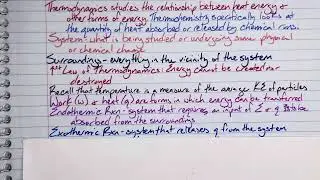 Thermodynamics studies the relationship between heat energy &
other forms of energy. Thermochemistry specifically looks at
the quantity of heat absorbed or released by chemical rxns.
System - what is being studied or undergoing some physical
or chemical change
Surroundings - everything in the vicinity of the system
1st Law of Thermodynamics: Energy cannot be created nor
destroyed
Recall that temperature is a measure of the average KE of particles
Work (w) & heat (q) are forms in which energy can be transferred
Endothermic Rxn - system that requires an input of E or q to be
absorbed from the surroundings
Exothermic Rxn - system that releases q from the system